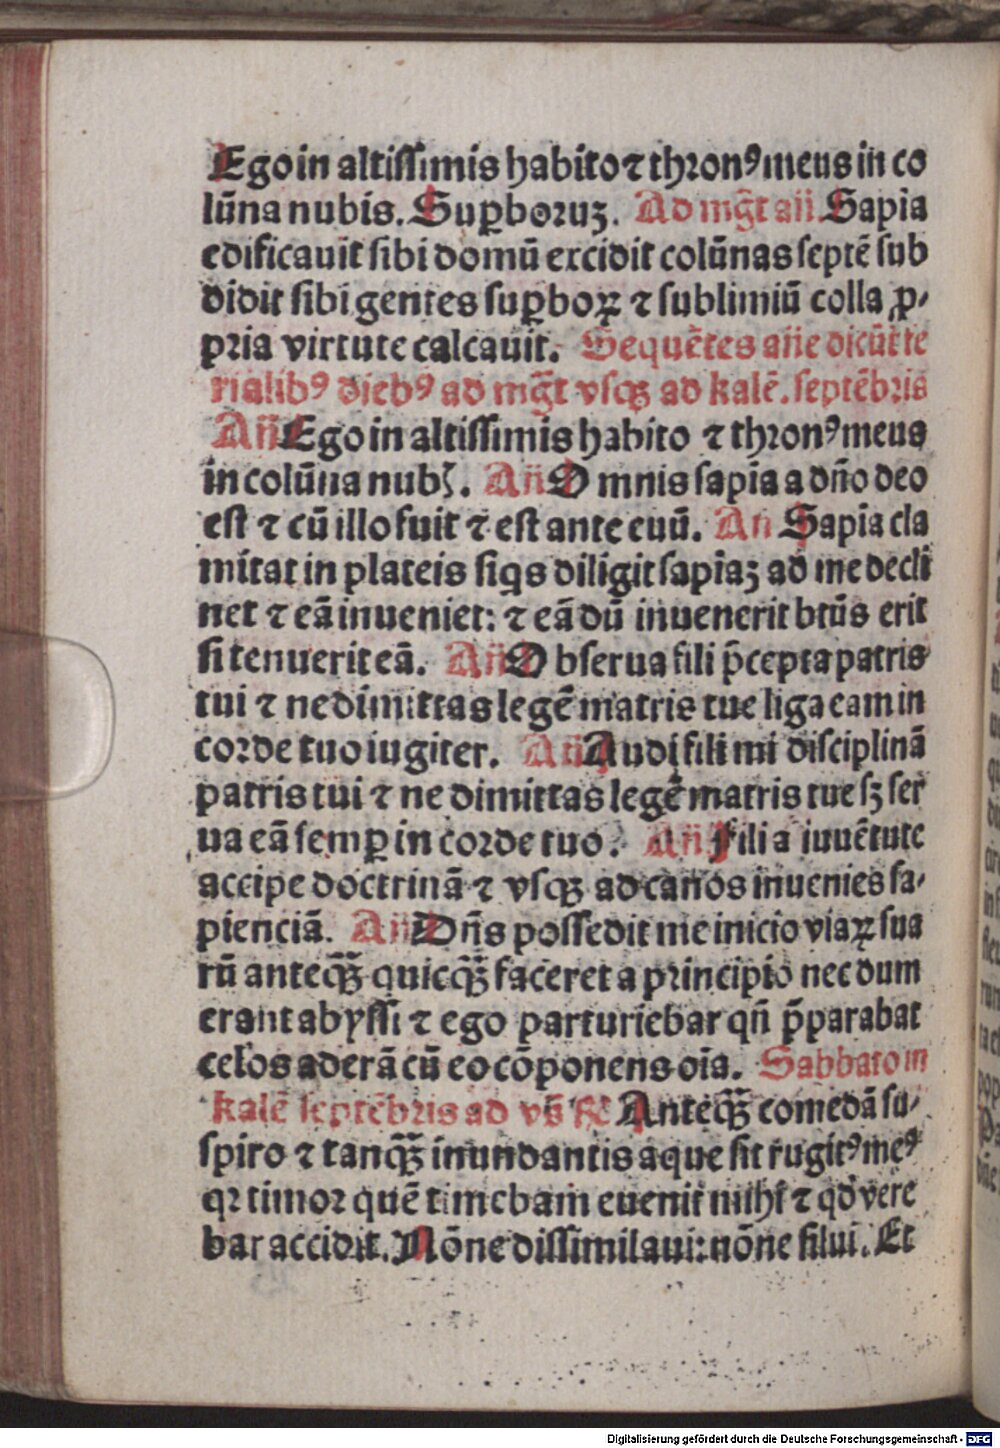 Ego in altissimis habito ⁊ thronꝰ meus in co
lūna nubis. Suꝑboruȝ. Ad mg̃t añ Sapīa
edificauit sibi domū excidit colūnas septē sub
didit sibi gentes suꝑboꝝ ⁊ sublimiū colla ꝓ⸗
pria virtute calcauit. Sequētes añe dicūt̃ fe
rialibꝰ diebꝰ ad mg̃t vsqꝫ ad kalē. septēbris
Añ Ego in altissimis habito ⁊ thronꝰ meus
in colūna nubꝭ. Añ Omnis sapīa a dño deo
est ⁊ cū illo fuit ⁊ est ante euū. Añ Sapīa cla
mitat in plateis siqͥs diligit sapīaȝ ad me decli
net ⁊ eā inueniet: ⁊ eā dū inuenerit btūs erit
si tenuerit eā. Añ Obserua fili p̄cepta patris
tui ⁊ ne dimittas legē matris tue liga eam in
corde tuo iugiter. Añ Audi fili mi disciplinā
patris tui ⁊ ne dimittas legē matris tue sȝ ser
ua eā semꝑ in corde tuo. Añ Fili a iuuētute
accipe doctrinā ⁊ vsqꝫ ad canos inuenies sa⸗
pienciā. Añ Dñs possedit me inicio viaꝝ sua
rū anteqꝫ̄ quicqꝫ̄ faceret a principio necdum
erant abyssi ⁊ ego parturiebar qñ p̄parabat
celos aderā cū eo cōponens oīa. Sabbato in
kalē septēbris ad vs̄ Rͤ Anteqꝫ̄ comedā su⸗
spiro ⁊ tanqꝫ̄ inundantis aque sic rugitꝰ meꝰ
qꝛ timor quē timebam euenit mihi ⁊ qd̄ vere
bar accidit. Nōne dissimilaui: nōne silui. Et
Digitalisierung gefördert durch die Deutsche Forschungsgemeinschaft - DFG